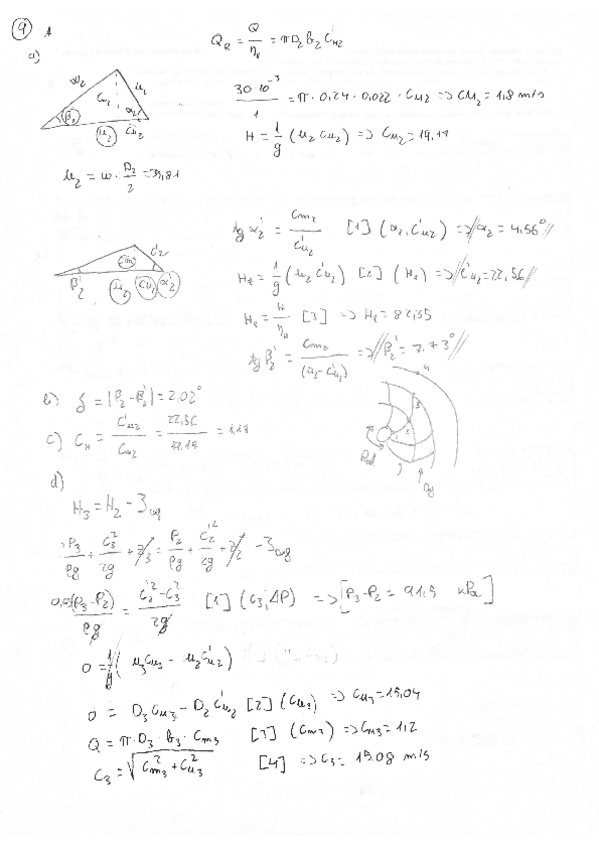 9
a)
Q_R = Q/η_v = π D_2 b_2 C_m2
w_2 c_m2 u_2 α_2 β_2 u_2 c_u2
30·10^-3/1 = π · 0,24 · 0,022 · C_m2 => C_m2 = 1,8 m/s
H = 1/g (u_2 c_u2) => C_u2 = 19,19
u_2 = ω · D_2/2 =
tg α_2' = C_m2/C_u2' [1] (α_2, C_u2') => α_2 = 4,56°
β_2' u_2 C_u2' α_2' C_2'
H_t = 1/g (u_2 C_u2') [2] (H_t) => C_u2' = 22,56
H_t = H/η_H [3] => H_t = 82,35
tg β_2' = C_m2/(u_2 - C_u2') => β_2' = 7,73°
b) δ = |β_2 - β_2'| = 2,02°
c) C_H = C_u2'/C_u2 = 22,56/19,19 = 1,18
d)
H_3 = H_2 - 3
P_3/ρg + C_3^2/2g + z_3 = P_2/ρg + C_2'^2/2g + z_2 - 3
(P_3 - P_2)/ρg = (C_2'^2 - C_3^2)/2g [1] (C_3, ΔP) => [P_3 - P_2 = 91,5 kPa]
0 = 1/g (u_3 C_u3 - u_2 C_u2')
0 = D_3 C_u3 - D_2 C_u2' [2] (C_u3) => C_u3 = 15,04
Q = π · D_3 · b_3 · C_m3 [3] (C_m3) => C_m3 = 1,2
C_3 = √(C_m3^2 + C_u3^2) [4] => C_3 = 15,08 m/s